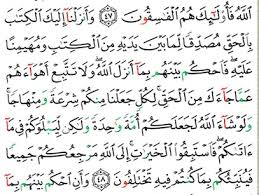 ٱللَّهُ فَأُو۟لَٰٓئِكَ هُمُ ٱلْفَٰسِقُونَ ٤٧ وَأَنزَلْنَآ إِلَيْكَ ٱلْكِتَٰبَ
بِٱلْحَقِّ مُصَدِّقًا لِّمَا بَيْنَ يَدَيْهِ مِنَ ٱلْكِتَٰبِ وَمُهَيْمِنًا
عَلَيْهِ فَٱحْكُم بَيْنَهُم بِمَآ أَنزَلَ ٱللَّهُ وَلَا تَتَّبِعْ أَهْوَآءَهُمْ
عَمَّا جَآءَكَ مِنَ ٱلْحَقِّ لِكُلٍّ جَعَلْنَا مِنكُمْ شِرْعَةً وَمِنْهَاجًا
وَلَوْ شَآءَ ٱللَّهُ لَجَعَلَكُمْ أُمَّةً وَٰحِدَةً وَلَٰكِن لِّيَبْلُوَكُمْ فِى مَآ
ءَاتَىٰكُمْ فَٱسْتَبِقُوا۟ ٱلْخَيْرَٰتِ إِلَى ٱللَّهِ مَرْجِعُكُمْ جَمِيعًا
فَيُنَبِّئُكُم بِمَا كُنتُمْ فِيهِ تَخْتَلِفُونَ ٤٨ وَأَنِ ٱحْكُم بَيْنَهُم بِمَآ